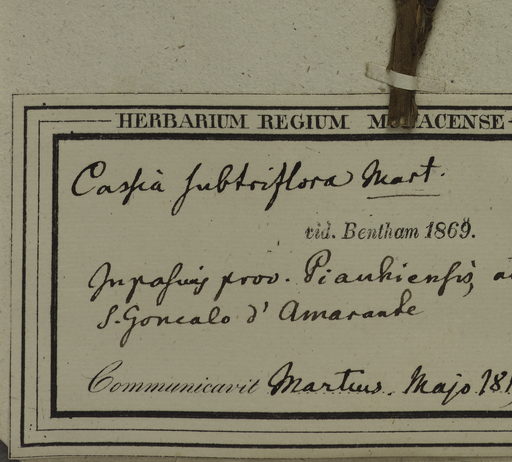 HERBARIUM REGIUM M ACENSE
Cassia subtriflora Mart.
vid. Bentham 1869.
In pascuis prov. Piauhiensis, a
S. Goncalo d' Amarante
Communicavit Martius. Majo 181